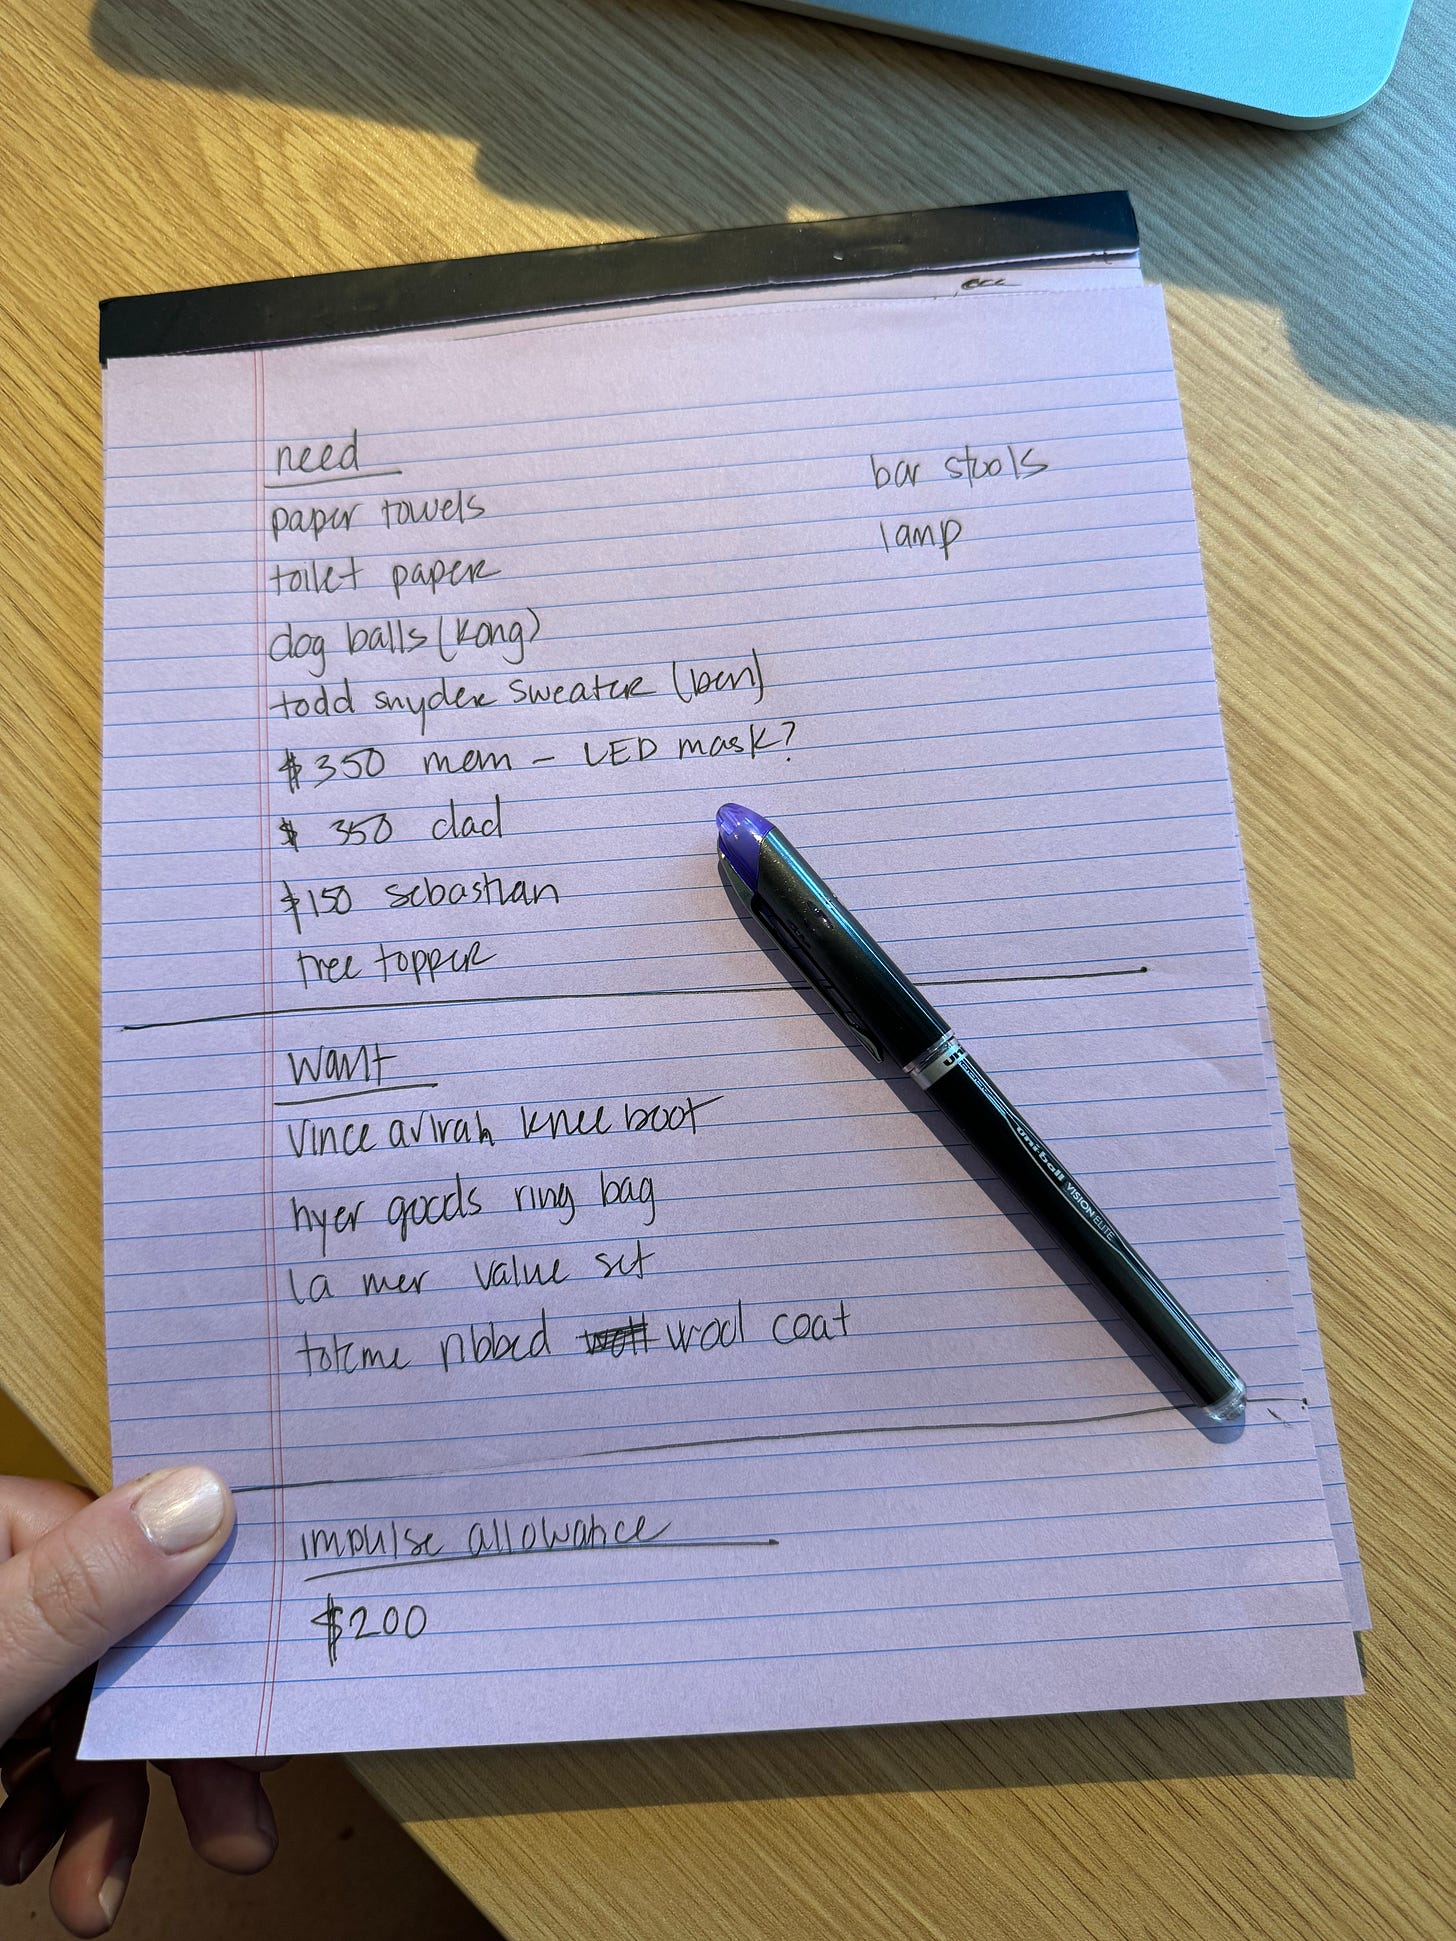 need
paper towels
toilet paper
dog balls (kong)
todd snyder sweater (ben)
$350 mom - LED mask?
$ 350 dad
$150 sebastian
tree topper
bar stools
lamp
want
vince avirah knee boot
hyer goods ring bag
la mer value set
toteme ribbed wool coat
impulse allowance
$200
uni-ball VISION ELITE